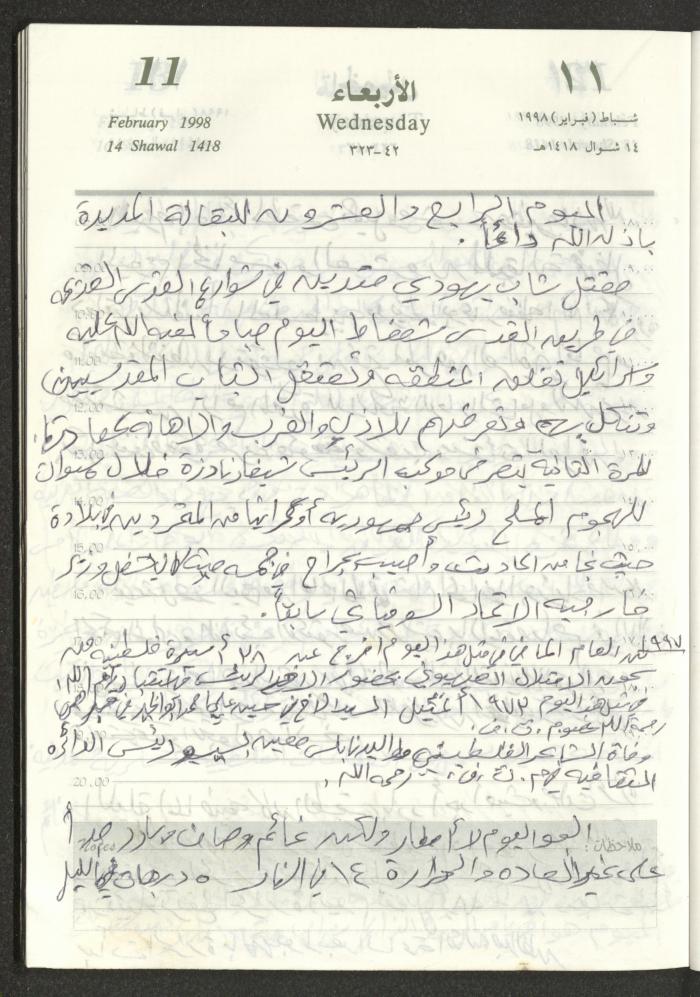 11
February 1998
14 Shawal 1418
الأربعاء
Wednesday
٤٢-٣٢٣
١١
شباط (فبراير) ١٩٩٨
١٤ شوال ١٤١٨هـ
اليوم الرابع والعشرون للبقالة الجديدة
بإذن الله دائماً.
مقتل شاب يهودي متدين في شوارع القدس القديمة
في طريق القدس شعفاط اليوم صباحاً لعنه الله عليه
واسرائيل تغلق المنطقة وتعتقل الشباب المقدسيين
وتنكل بهم وتعرضهم للأذى والضرب والاهانة
للمرة الثانية يتعرض موكب الرئيس شيفارنادزة خلال
للهجوم المسلح رئيس جمهورية أوكرانيا من المتمردين في بلادة
حيث نجا من الحادث وأصيب بجراح في وزير
خارجية الاتحاد السوفياتي سابقاً.
١٩٩٧ من العام الماضي في مثل هذا اليوم أفرج عن ٢٨ أسيرة فلسطينية من
سجون الاحتلال الصهيوني بحضور الرئيس
في مثل هذا اليوم ١٩٧٢
رحمة الله
وفاة الشاعر الفلسطيني رئيس الدائرة
الثقافية في م.ت.ف. رحمه الله.
ملاحظات:
الجو اليوم لا أمطار ولكن غائم وصاف وبارد جداً
على غير العادة والحرارة ١٤ في النهار ٥ درجات في الليل